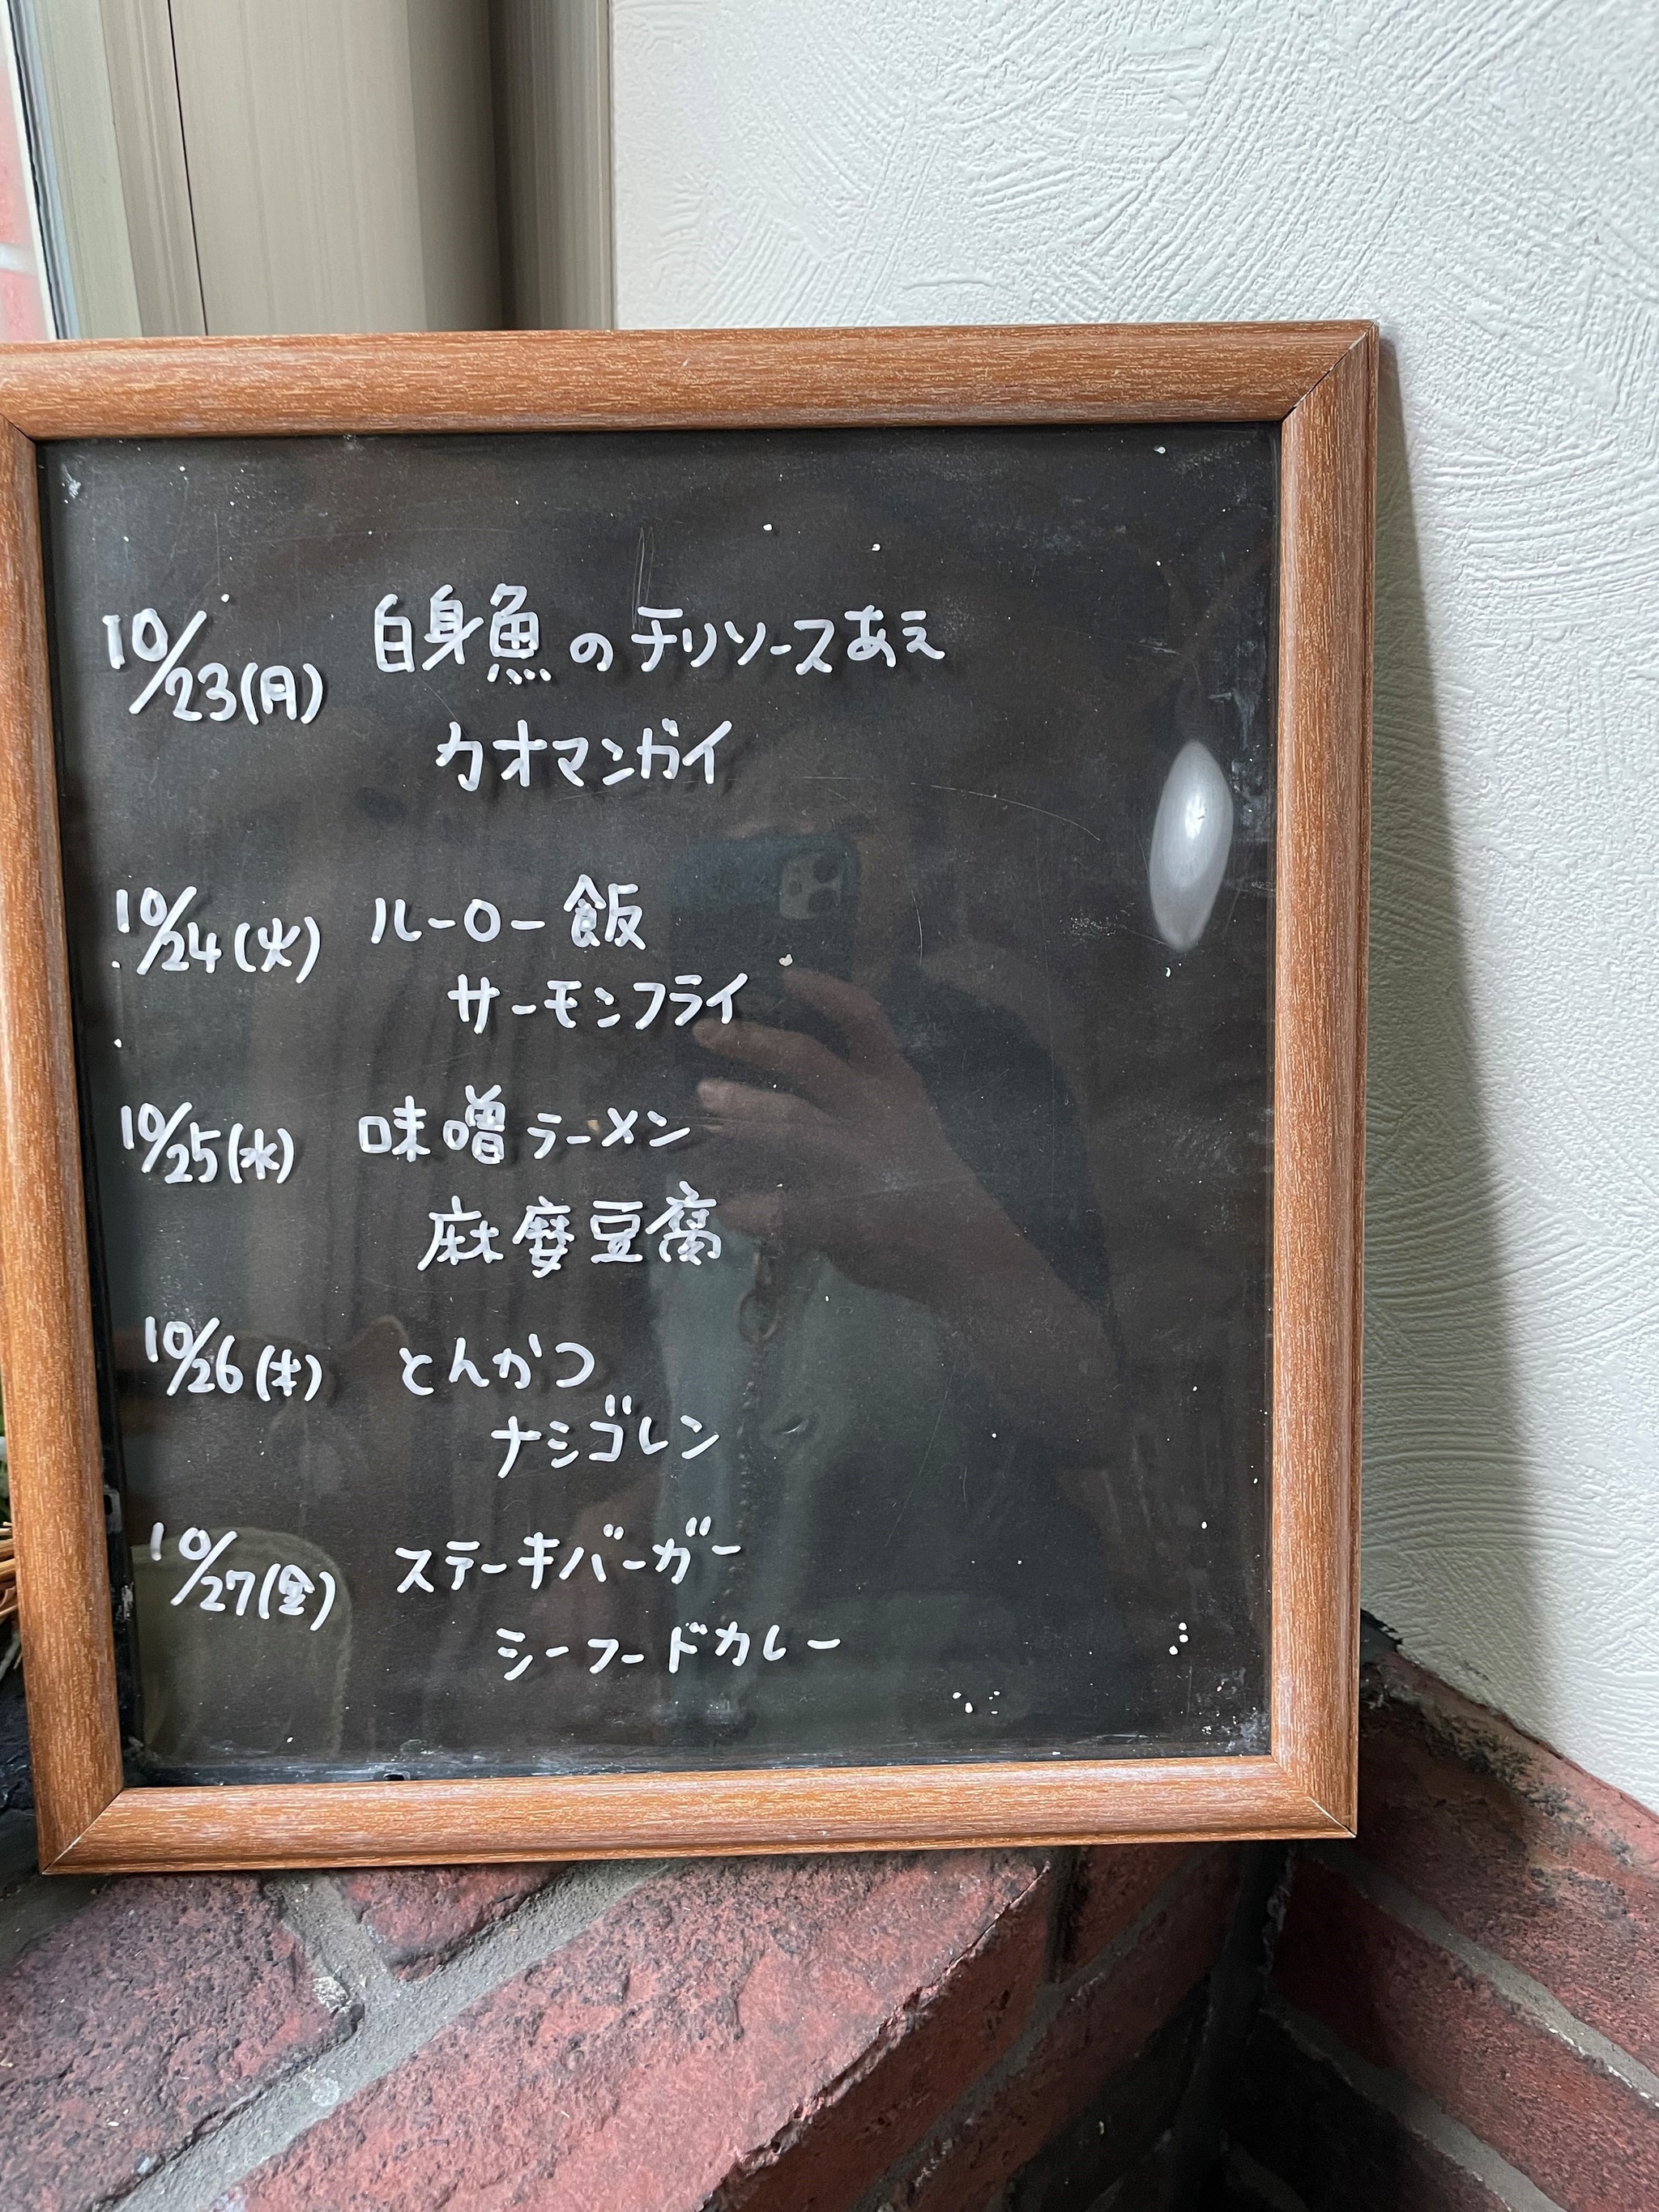 10/23(月) 白身魚のチリソースあえ
カオマンガイ
10/24(火) ルーロー飯
サーモンフライ
10/25(水) 味噌ラーメン
麻婆豆腐
10/26(木) とんかつ
ナシゴレン
10/27(金) ステーキバーガー
シーフードカレー